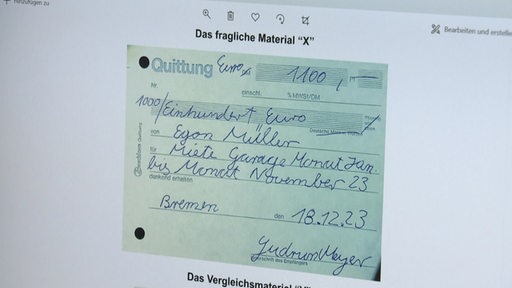 Hinzufügen zu
Bearbeiten und erstelle
Das fragliche Material "X"
Quittung Euro 1100,
Nr. einschl. % MWSt/DM
1000/Einhundert Euro
von Egon Müller
für Miete Garage Monat Jan.
bis Monat November 23
dankend erhalten
Bremen den 18.12.23
Gudrun Meyer
Unterschrift des Empfängers
Das Vergleichsmaterial